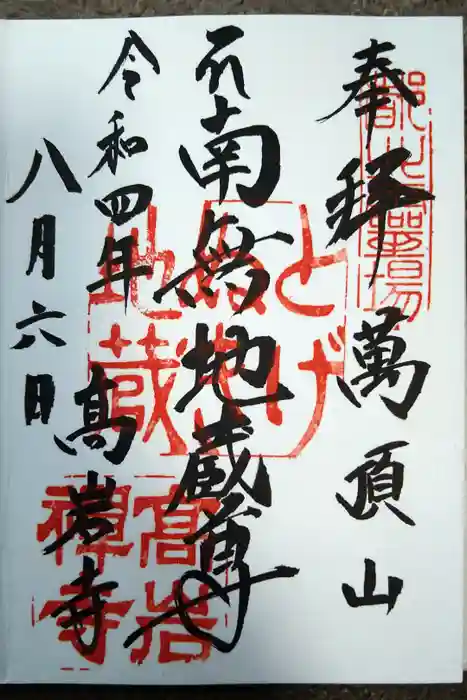 奉拜 萬頂山
南無地蔵尊
令和四年 高岩寺
八月六日
とげぬき地蔵
高岩禅寺